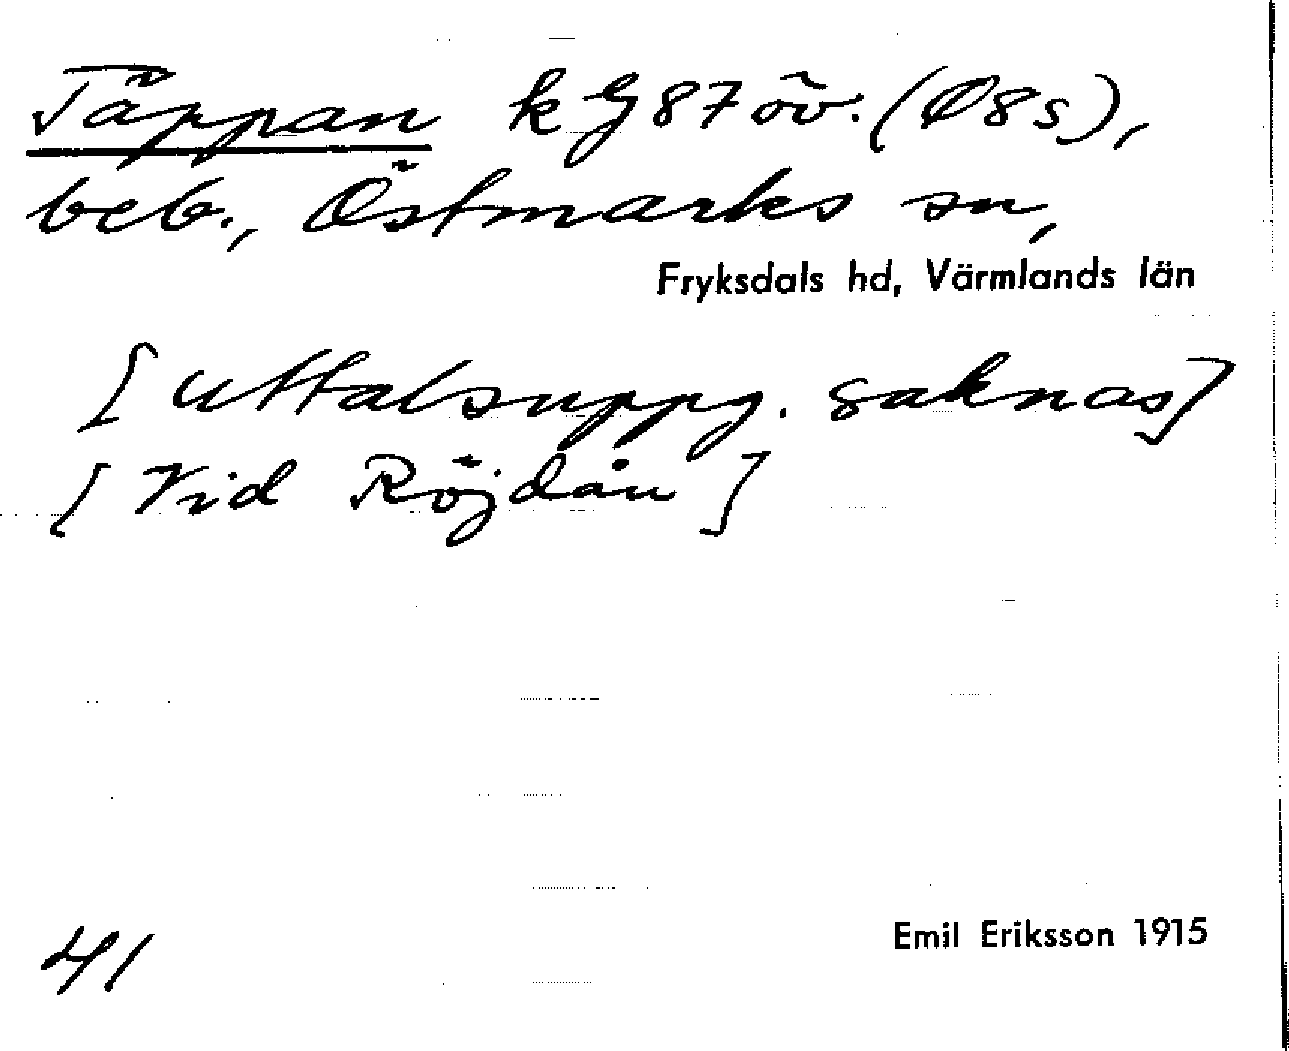 Täppan k G87öv. (Ø8s),
beb., Östmarks sn,
Fryksdals hd, Värmlands län
[uttalsuppg. saknas]
[Vid Röjdån]
41
Emil Eriksson 1915